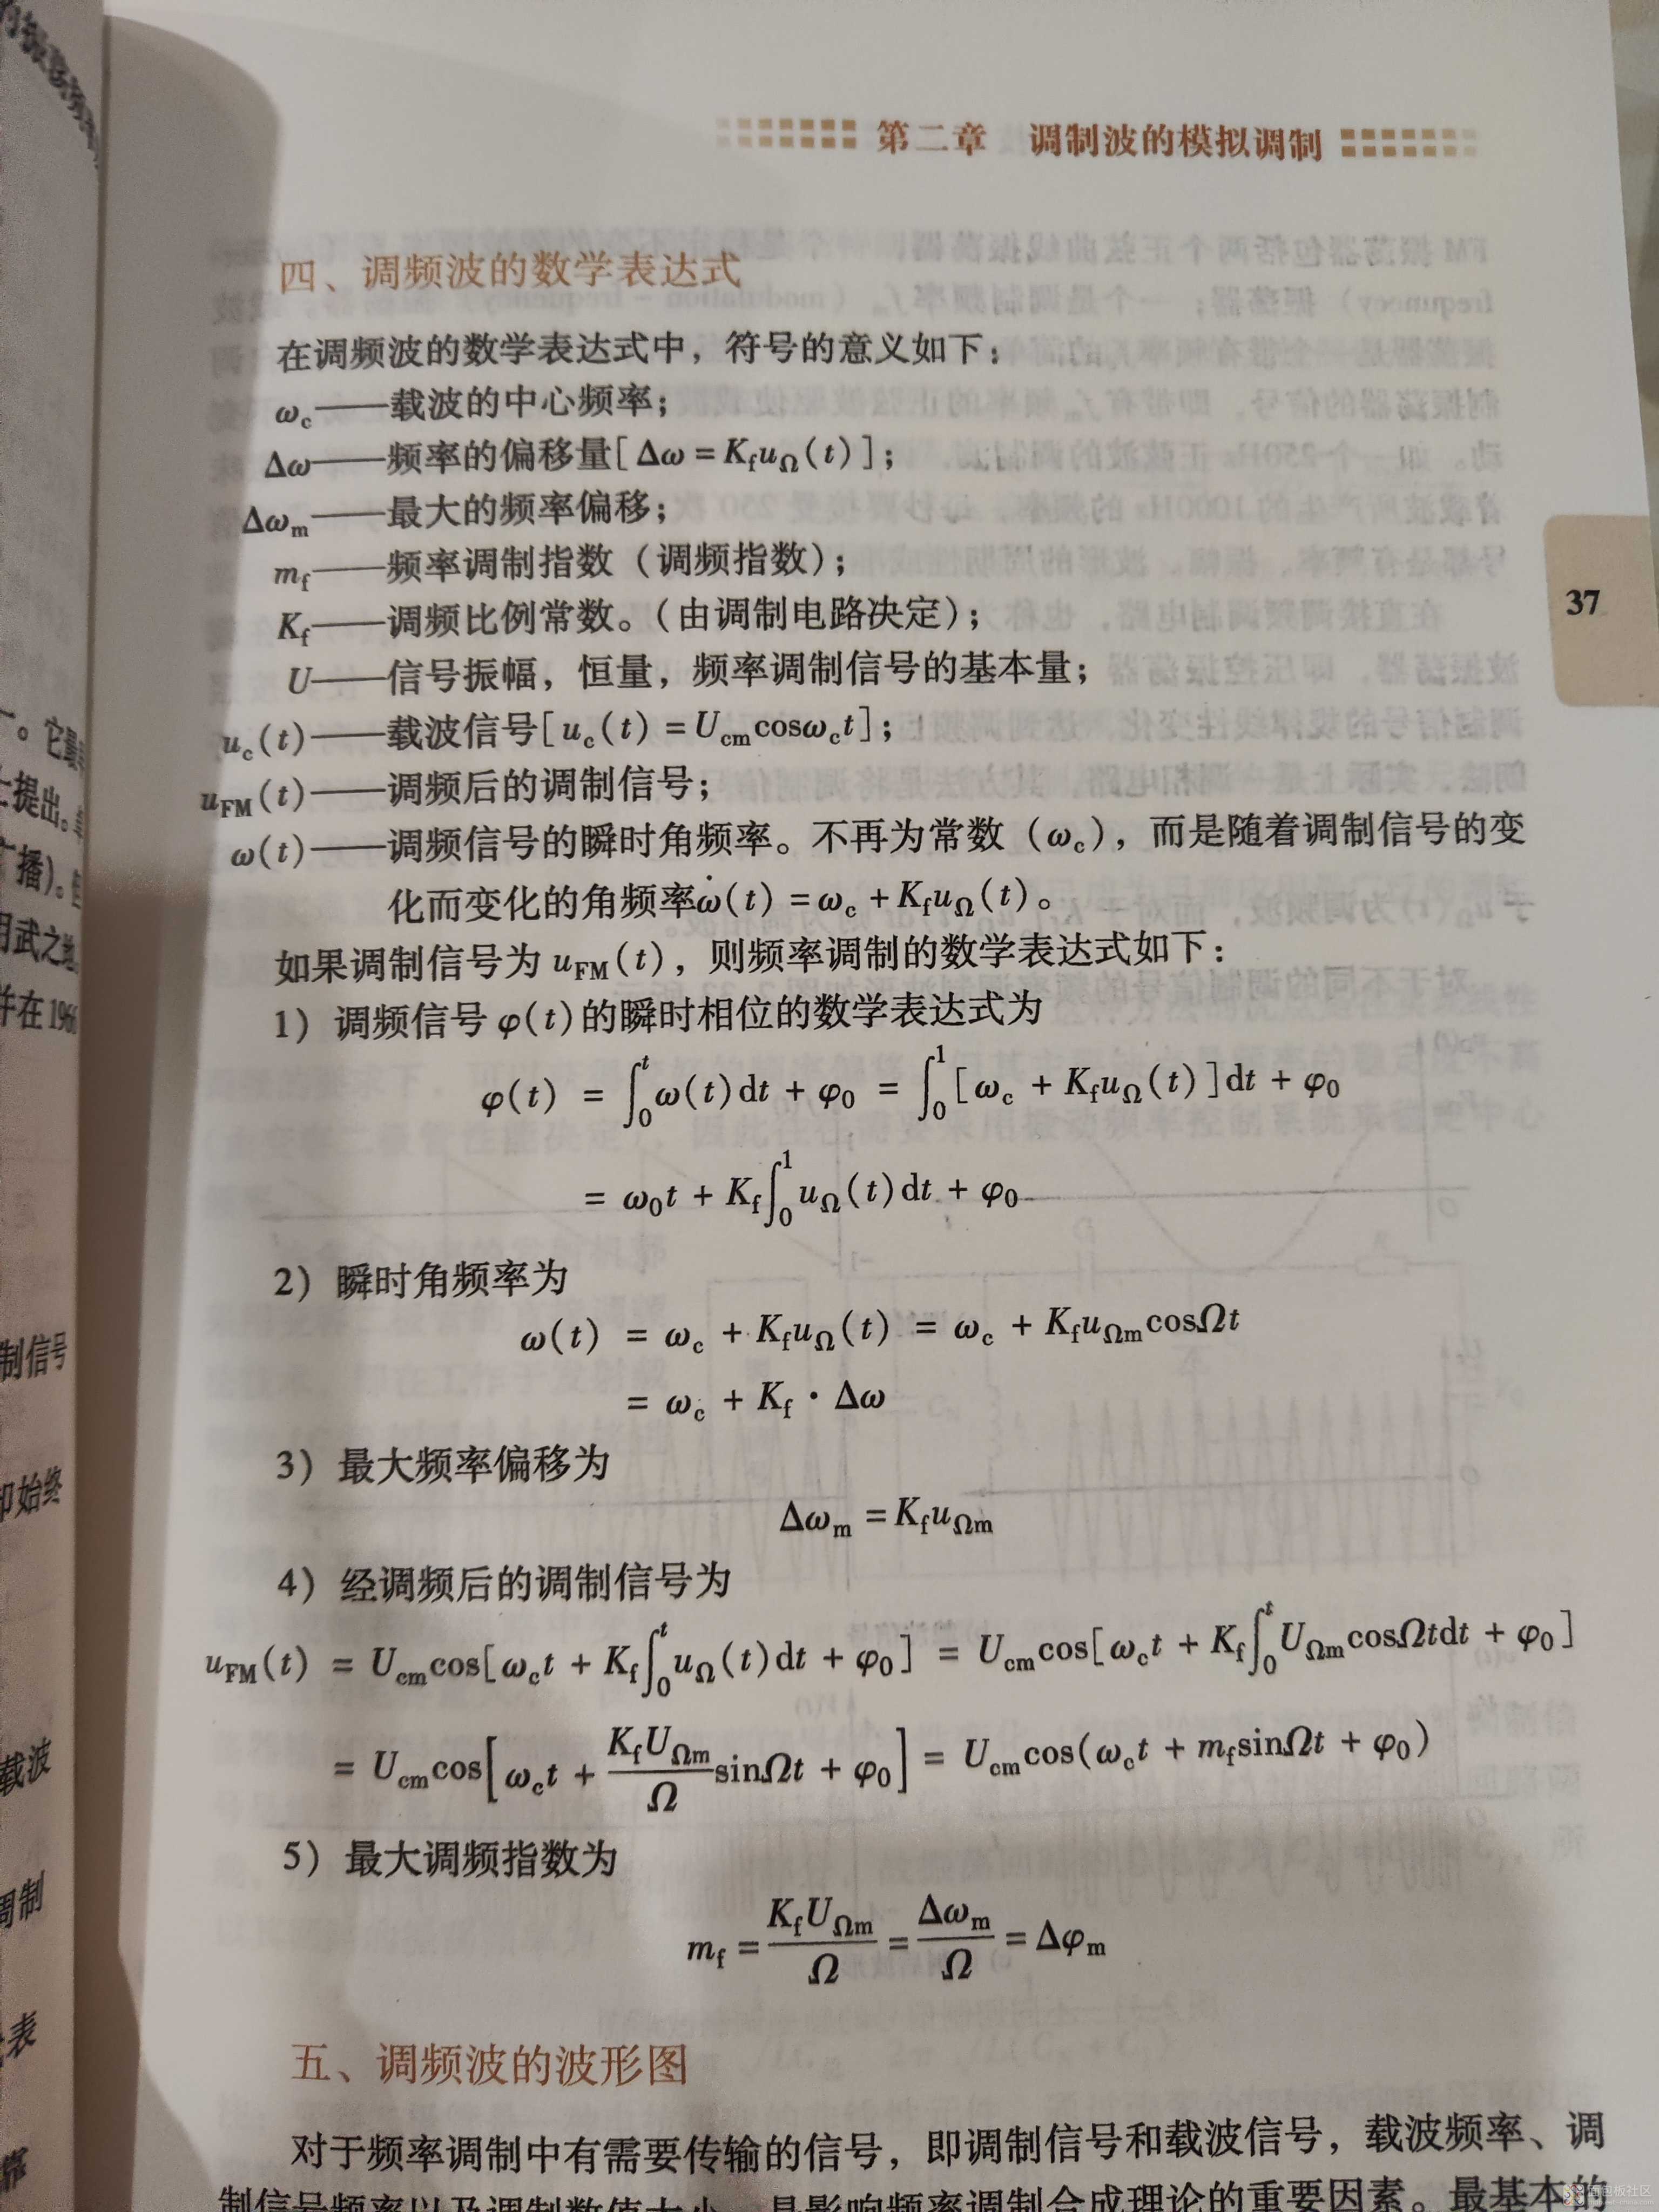 第二章 调制波的模拟调制
四、调频波的数学表达式
在调频波的数学表达式中，符号的意义如下：
ω_c——载波的中心频率；
Δω——频率的偏移量[Δω = K_f u_Ω(t)]；
Δω_m——最大的频率偏移；
m_f——频率调制指数（调频指数）；
K_f——调频比例常数。（由调制电路决定）；
37
U——信号振幅，恒量，频率调制信号的基本量；
u_c(t)——载波信号[u_c(t) = U_cm cosω_c t]；
u_FM(t)——调频后的调制信号；
ω(t)——调频信号的瞬时角频率。不再为常数（ω_c），而是随着调制信号的变
化而变化的角频率ω(t) = ω_c + K_f u_Ω(t)。
如果调制信号为 u_FM(t)，则频率调制的数学表达式如下：
1）调频信号 φ(t)的瞬时相位的数学表达式为
φ(t) = ∫_0^t ω(t)dt + φ_0 = ∫_0^1 [ω_c + K_f u_Ω(t)]dt + φ_0
= ω_0 t + K_f ∫_0^1 u_Ω(t)dt + φ_0
2）瞬时角频率为
ω(t) = ω_c + K_f u_Ω(t) = ω_c + K_f u_Ωm cosΩt
= ω_c + K_f · Δω
3）最大频率偏移为
Δω_m = K_f u_Ωm
4）经调频后的调制信号为
u_FM(t) = U_cm cos[ω_c t + K_f ∫_0^t u_Ω(t)dt + φ_0] = U_cm cos[ω_c t + K_f ∫_0^t U_Ωm cosΩtdt + φ_0]
= U_cm cos[ω_c t + K_f U_Ωm/Ω sinΩt + φ_0] = U_cm cos(ω_c t + m_f sinΩt + φ_0)
5）最大调频指数为
m_f = K_f U_Ωm/Ω = Δω_m/Ω = Δφ_m
五、调频波的波形图
对于频率调制中有需要传输的信号，即调制信号和载波信号，载波频率、调
制信号频率以及调制数值大小，是影响频率调制合成理论的重要因素。最基本的
面包板社区